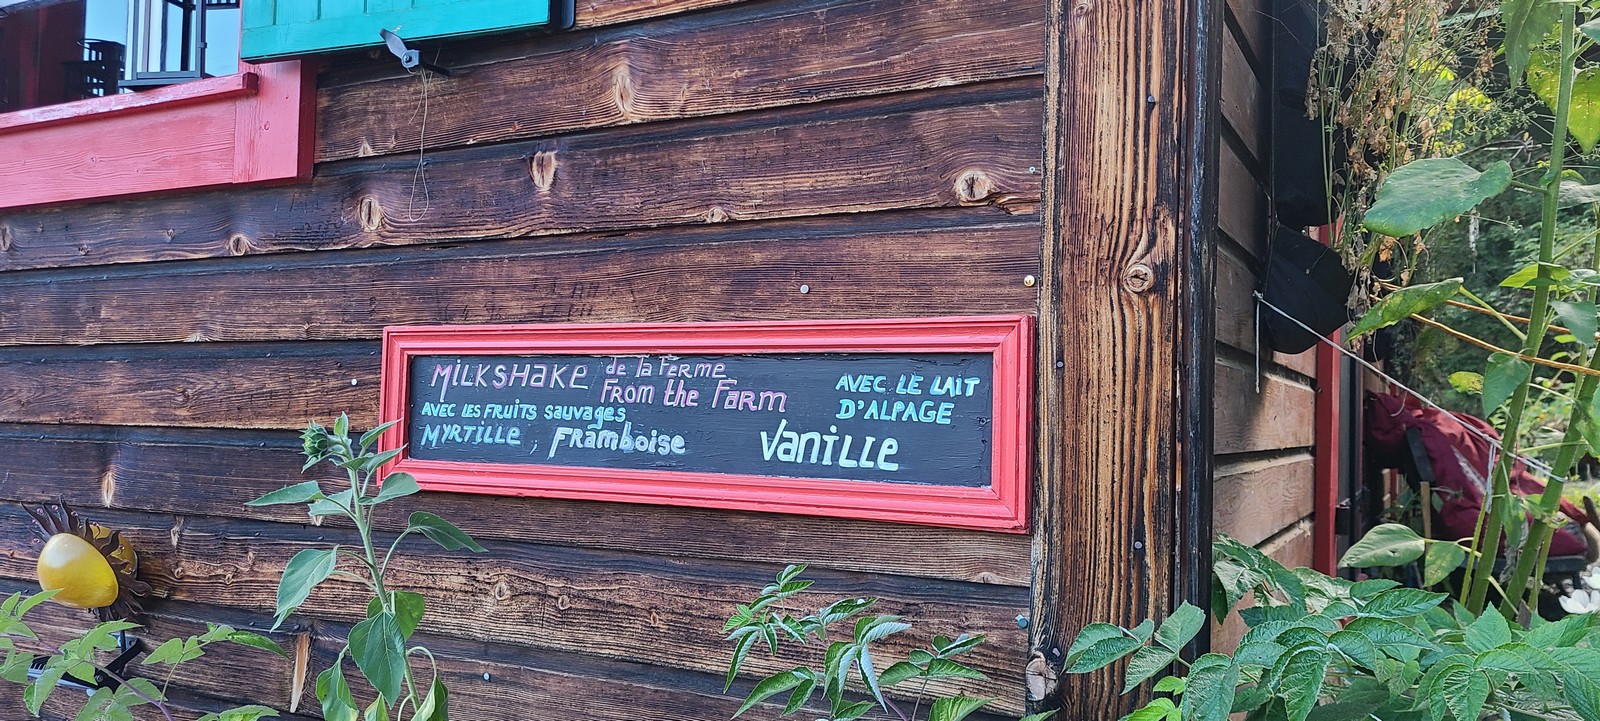 MILKSHAKE de la FERME
From the Farm
AVEC LES FRUITS sauvages
MYRTILLE , Framboise
AVEC LE LAIT
D'ALPAGE
VANILLE